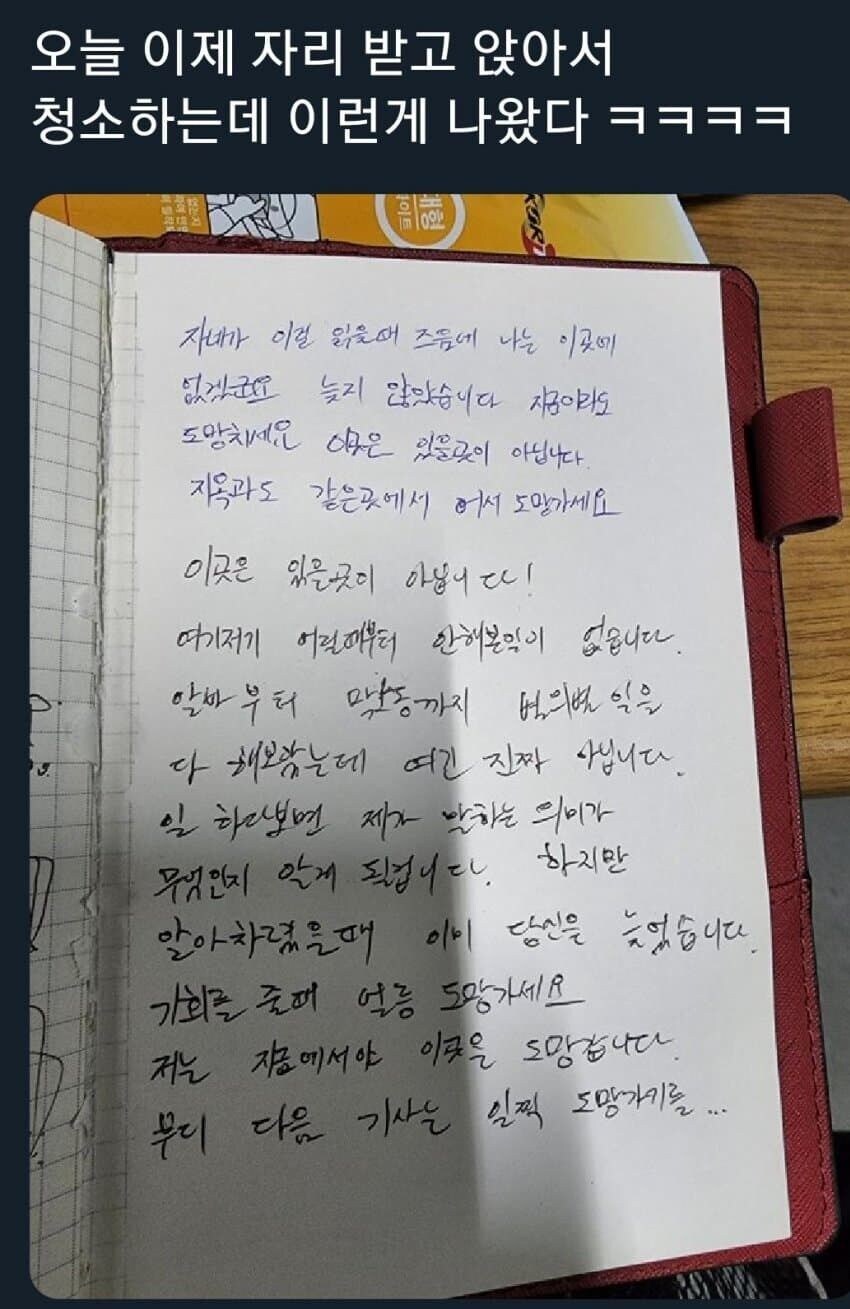 오늘 이제 자리 받고 앉아서
청소하는데 이런게 나왔다 ㅋㅋㅋㅋ
대형
자네가 이럴 읽을때 즈음에 나는 이곳에
없겠군요 늦지 않았습니다 지금이라도
도망치세요 이곳은 있을곳이 아닙니다.
지옥과도 같은곳에서 어서 도망가세요
이곳은 있을곳이 아닙니다!
여기저기 어릴때부터 안해본일이 없습니다.
알바부터 막노동까지 별의별 일을
다 해보았는데 여긴 진짜 아닙니다.
일 하다보면 제가 말하는 의미가
무엇인지 알게 될겁니다. 하지만
알아차렸을때 이미 당신은 늦었습니다.
기회를 줄때 얼릉 도망가세요
저는 지금에서야 이곳을 도망갑니다.
부디 다음 기사는 일찍 도망가기를...